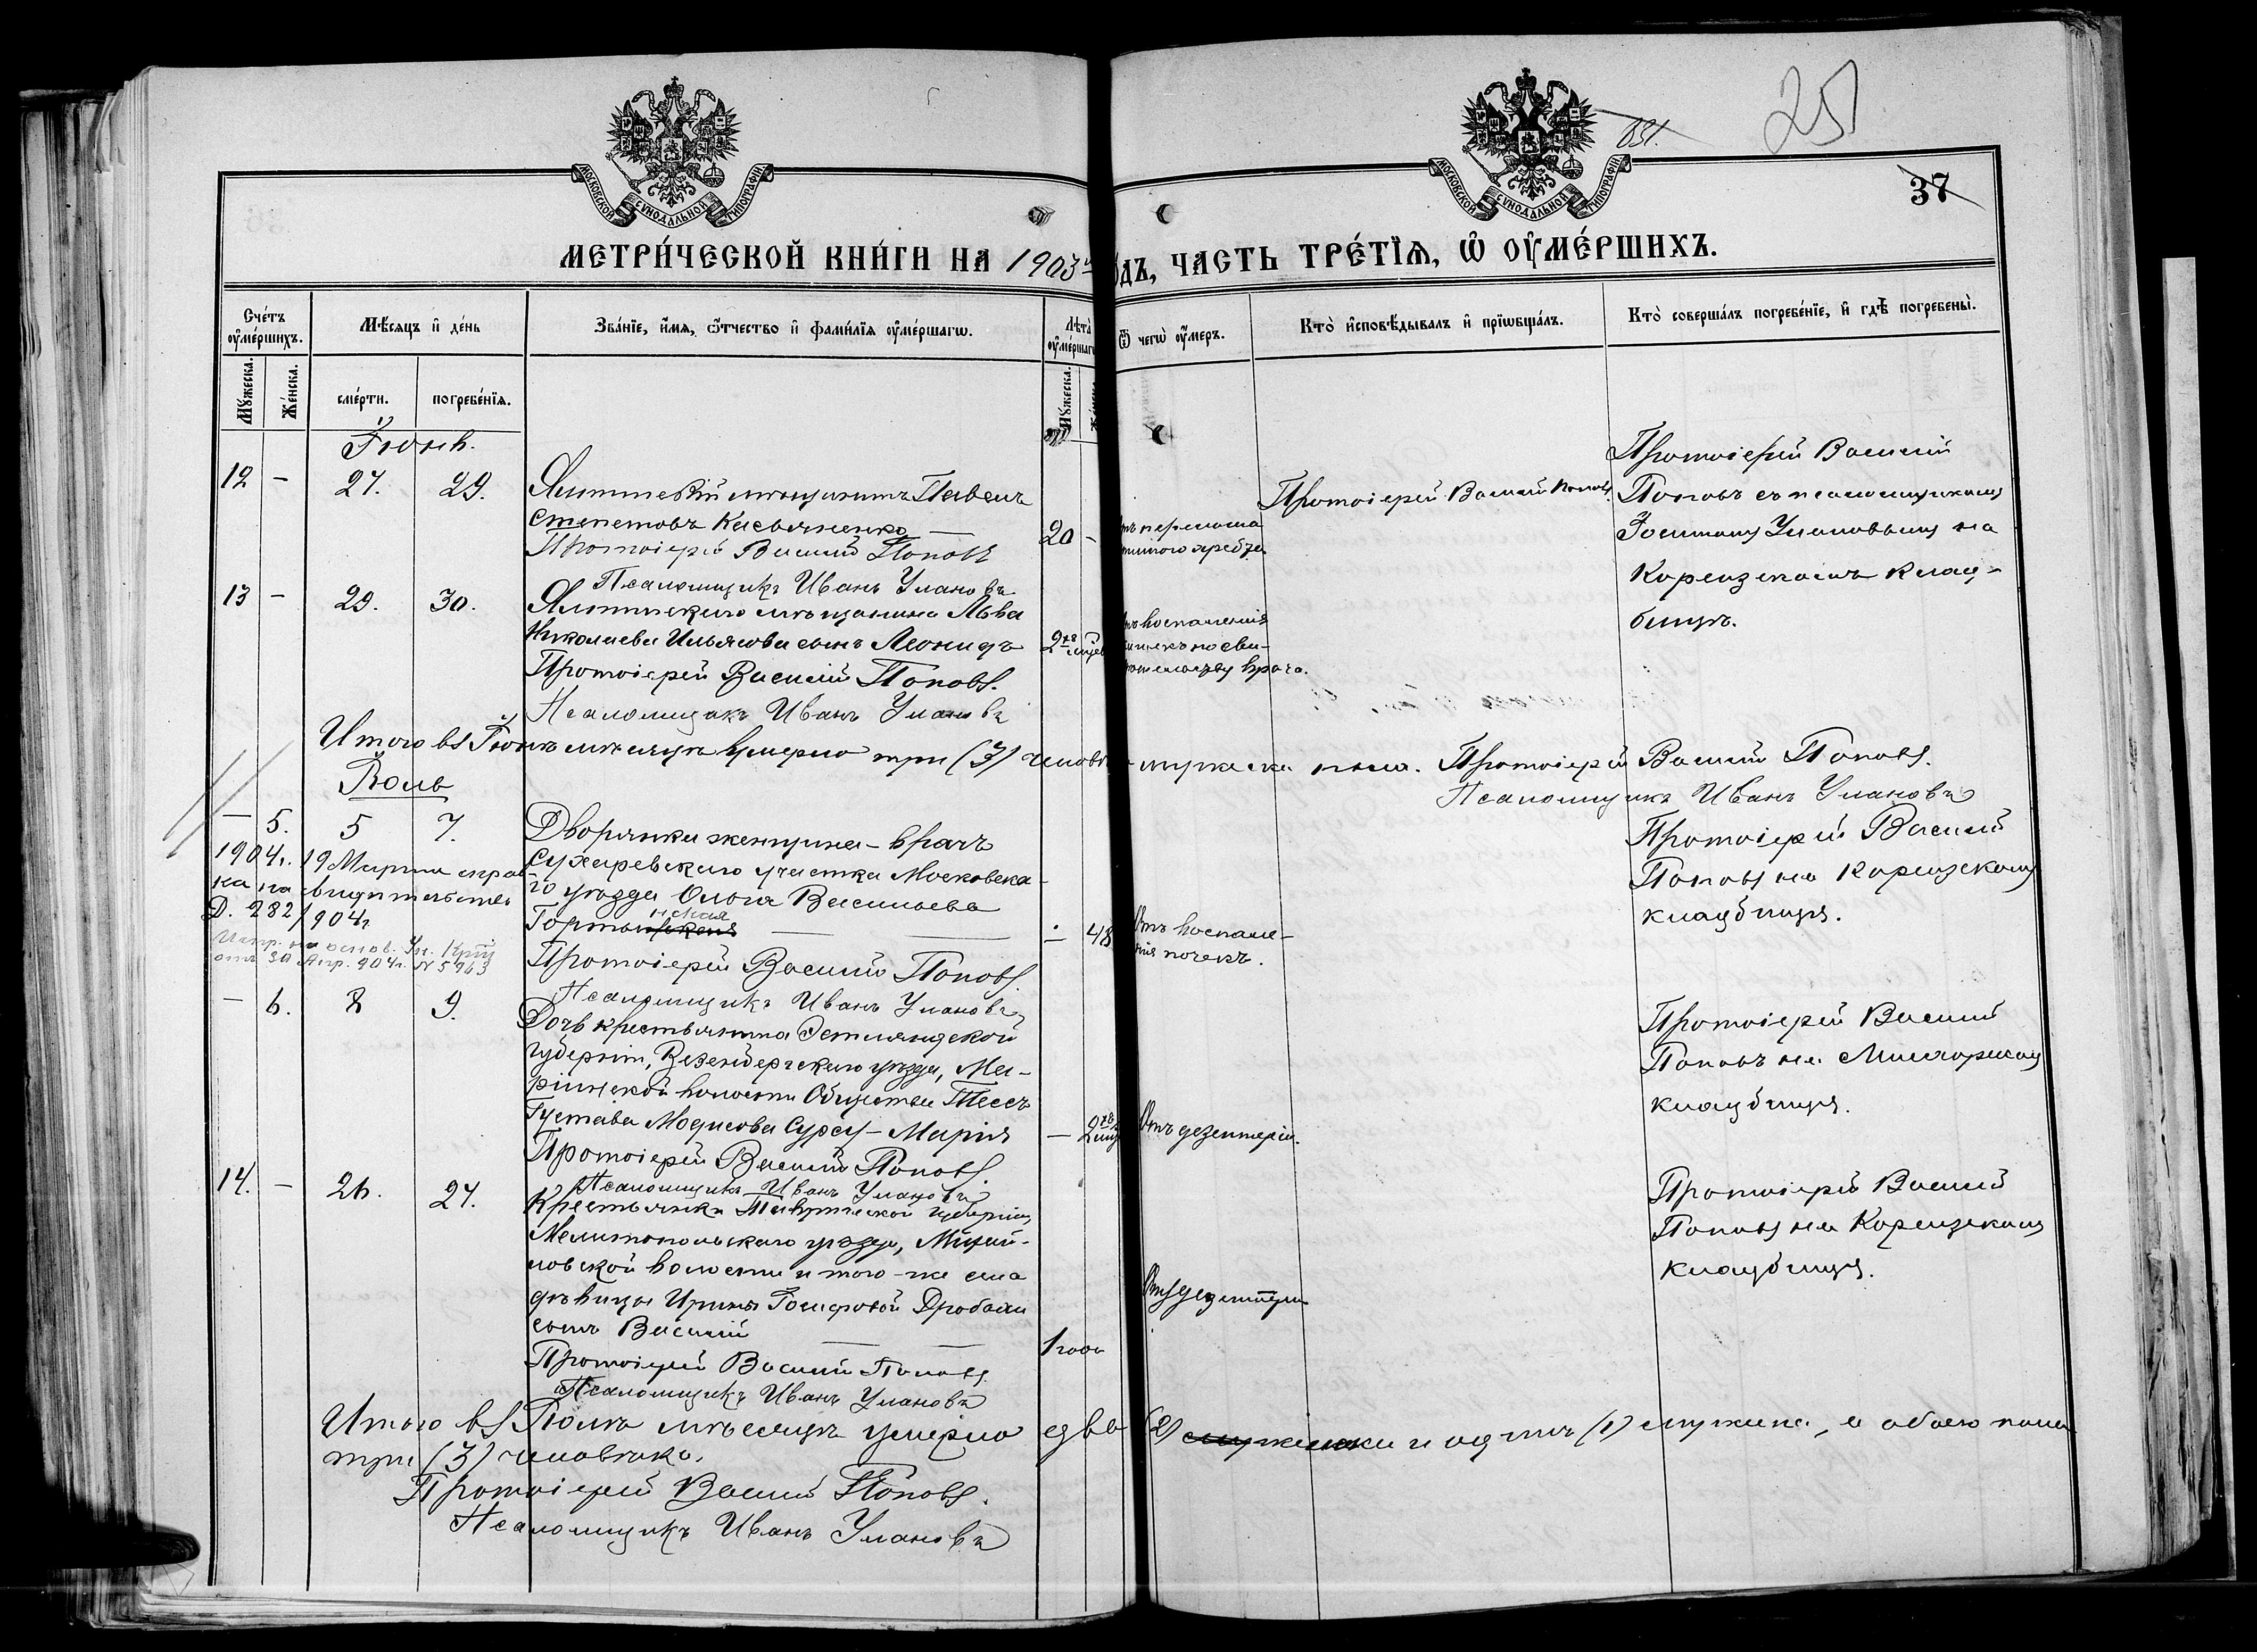 МОСКОВСКОЙ СУНОДАЛЬНОЙ ТИПОГРАФІИ
МОСКОВСКОЙ СУНОДАЛЬНОЙ ТИПОГРАФІИ
251
37
МЕТРИ́ЧЕСКОЙ КНИ́ГИ НА 1903й
ОДЪ, ЧАСТЬ ТРЕ́ТІѦ, Ѡ ОУМЕ́РШИХЪ.
Сче́тъ оуме́ршихъ.
Мѣ́сяцъ и де́нь
Зва́нїе, и́мѧ, ѻ҆́тчество и фами́лїѧ оуме́ршагѡ.
Лѣта̀ оуме́ршагѡ
Ѿ чегѡ̀ оу́меръ.
Кто̀ исповѣ́дывалъ и прїѡбща́лъ.
Кто̀ соверша́лъ погребе́нїе, и гдѣ̀ погребены̀.
Мꙋ́жеска.
Же́нска.
сме́рти.
погребе́нїѧ.
Мꙋ́жеска.
Іюнь.
12 - 27. 29.
Ялтинскій мѣщанинъ Павелъ
Степановъ Касьяненко
20 -
Протоіерей Василій Поповъ
Псаломщикъ Иванъ Улановъ
Протоіерей Василій Поповъ.
Протоіерей Василій
Поповъ съ псаломщикомъ
Іоанномъ Улановымъ на
Кореизскомъ клад-
бищѣ.
13 - 29. 30.
Ялтинскаго мѣщанина Льва
Николаева Ильясова сынъ Леонидъ
Протоіерей Василій Поповъ.
Псаломщикъ Иванъ Улановъ
2хъ мѣсяц
воспаленія
по сви-
дѣтельству врача.
Итого въ Іюнѣ мѣсяцѣ умерло три (3) человѣка мужеска пола. Протоіерей Василій Поповъ.
Псаломщикъ Иванъ Улановъ
Іюль
— 5. 5 7.
Дворянка женщина-врачъ
Сухаревскаго участка Московска-
го уѣзда Ольга Васильева
Горты нская
Протоіерей Василій Поповъ.
Псаломщикъ Иванъ Улановъ
— 48
Отъ воспале-
нія почекъ.
Протоіерей Василій
Поповъ на Кореизскомъ
кладбищѣ.
1904г. 19 Марта справ
ка на свидѣтельство
Д. 282/904г
Испр. на основ. Ук.
отъ 30 Апр. 904г. № 5963
— 6. 8 9.
Дочь крестьянина Эстляндской
губерніи, Везенбергскаго уѣзда, Ма-
ріинской волости Общества
Густава Модисова Сурсу - Марія
Протоіерей Василій Поповъ.
Псаломщикъ Иванъ Улановъ
— 2хъ
Отъ дезентеріи.
Протоіерей Василій
Поповъ на Мисхорскомъ
кладбищѣ.
14. - 26. 27.
Крестьянки Таврической губерніи,
Мелитопольскаго уѣзда, Михай-
ловской волости и того-же села
дѣвицы Ирины Іосифовой Дробом
сынъ Василій
1 года
Протоіерей Василій Поповъ.
Псаломщикъ Иванъ Улановъ
Отъ дезинтеріи
Протоіерей Василій
Поповъ на Кореизскомъ
кладбищѣ.
Итого въ Іюлѣ мѣсяцѣ умерло два (2) и одинъ (1) мужеска, а обоего пола
три (3) человѣка.
Протоіерей Василій Поповъ.
Псаломщикъ Иванъ Улановъ